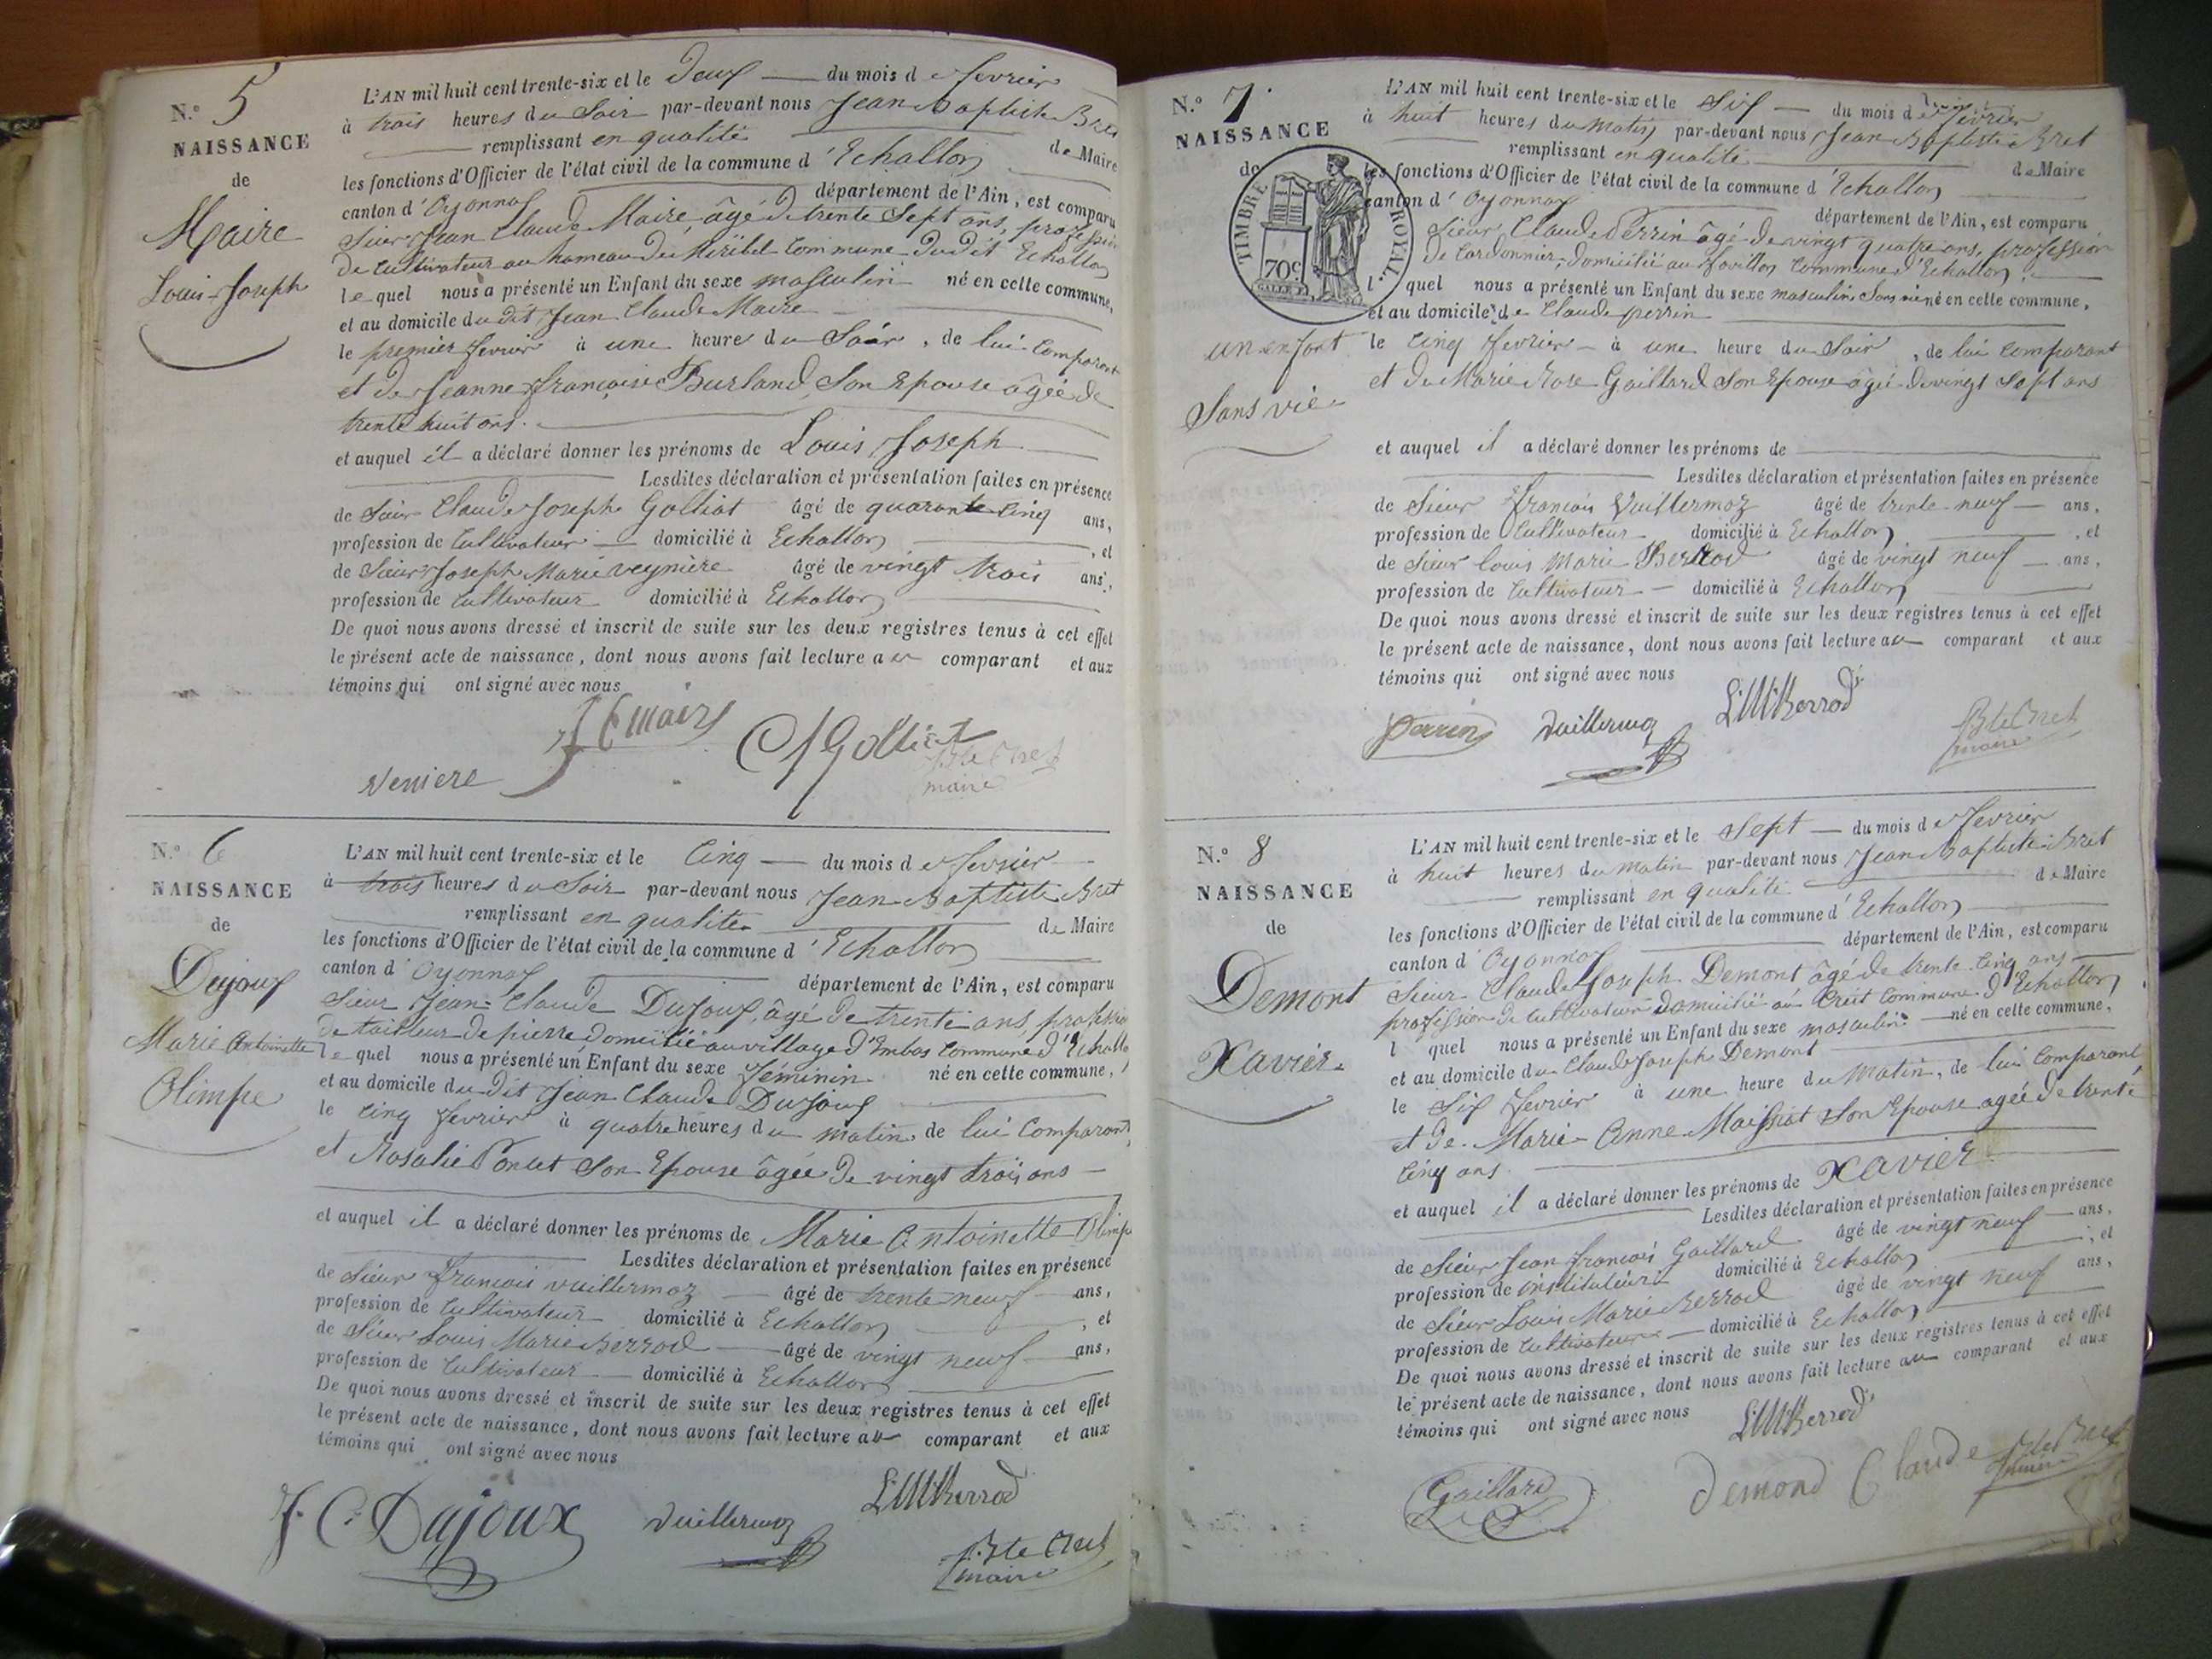 N.º 5
NAISSANCE
de
Maire
Louis Joseph
L'AN mil huit cent trente-six et le Deux du mois de fevrier
à trois heures du Soir par-devant nous Jean Baptiste Bret
remplissant en qualité de Maire
les fonctions d'Officier de l'état civil de la commune d'Echallon
canton d'Oyonnax département de l'Ain, est comparu
Sieur Jean Claude Maire, âgé de trente Sept ans, profession
De Cultivateur au hameau du Miribel Commune Dudit Echallon
lequel nous a présenté un Enfant du sexe masculin né en cette commune,
et au domicile du dit Jean Claude Maire
le premier fevrier à une heure du Soir, de lui Comparant
et de Jeanne françoise Burland, Son Epouse âgée de
trente huit ans.
et auquel il a déclaré donner les prénoms de Louis Joseph
Lesdites déclaration et présentation faites en présence
de Sieur Claude Joseph Golliat âgé de quarante Cinq ans,
profession de Cultivateur domicilié à Echallon, et
de Sieur Joseph Marie veynière âgé de vingt trois ans,
profession de Cultivateur domicilié à Echallon
De quoi nous avons dressé et inscrit de suite sur les deux registres tenus à cet effet
le présent acte de naissance, dont nous avons fait lecture au comparant et aux
témoins qui ont signé avec nous
J C maire CJGolliat
Veniere Bte Bret
maire
N.º 6
NAISSANCE
de
Dujoux
Marie Antoinette
Olimpe
L'AN mil huit cent trente-six et le Cinq du mois de fevrier
à trois heures du Soir par-devant nous Jean Baptiste Bret
remplissant en qualité de Maire
les fonctions d'Officier de l'état civil de la commune d'Echallon
canton d'Oyonnax département de l'Ain, est comparu
Sieur Jean-Claude Dujoux, âgé de trente ans, profession
de tailleur de pierre domicilié au village d'Embas Commune d'Echallon
lequel nous a présenté un Enfant du sexe féminin né en cette commune,
et au domicile du dit Jean Claude Dujoux
le Cinq fevrier à quatre heures du matin de lui Comparant
et Rosalie Poncet Son Epouse âgée de vingt trois ans
et auquel il a déclaré donner les prénoms de Marie Antoinette Olimpe
Lesdites déclaration et présentation faites en présence
de Sieur françois vuillermoz âgé de trente neuf ans,
profession de Cultivateur domicilié à Echallon, et
de Sieur Louis Marie Berrod âgé de vingt neuf ans,
profession de Cultivateur domicilié à Echallon
De quoi nous avons dressé et inscrit de suite sur les deux registres tenus à cet effet
le présent acte de naissance, dont nous avons fait lecture au comparant et aux
témoins qui ont signé avec nous
J. C. Dujoux Vuillermoz L.M Berrod
Bte Bret
maire
N.º 7
NAISSANCE
de
TIMBRE ROYAL.
70c
un enfant
Sans vie
L'AN mil huit cent trente-six et le Six du mois de fevrier
à huit heures du matin par-devant nous Jean Baptiste Bret
remplissant en qualité de Maire
les fonctions d'Officier de l'état civil de la commune d'Echallon
canton d'Oyonnax département de l'Ain, est comparu
Sieur Claude Perrin âgé de vingt quatre ans, profession
De Cordonnier, domicilié au Commune d'Echallon
l quel nous a présenté un Enfant du sexe masculin Sans vie né en cette commune,
et au domicile de Claude perrin
le Cinq fevrier à une heure du Soir, de lui Comparant
et de Marie Rose Gaillard Son Epouse âgée de vingt Sept ans
et auquel il a déclaré donner les prénoms de
Lesdites déclaration et présentation faites en présence
de Sieur françois Vuillermoz âgé de trente-neuf ans,
profession de Cultivateur domicilié à Echallon, et
de Sieur Louis Marie Berrod âgé de vingt neuf ans,
profession de Cultivateur domicilié à Echallon
De quoi nous avons dressé et inscrit de suite sur les deux registres tenus à cet effet
le présent acte de naissance, dont nous avons fait lecture au comparant et aux
témoins qui ont signé avec nous
Perrin Vuillermoz L.M Berrod Bte Bret
maire
N.º 8
NAISSANCE
de
Demont
Xavier.
L'AN mil huit cent trente-six et le Sept du mois de fevrier
à huit heures du matin par-devant nous Jean Baptiste Bret
remplissant en qualité de Maire
les fonctions d'Officier de l'état civil de la commune d'Echallon
canton d'Oyonnax département de l'Ain, est comparu
Sieur Claude Joseph Demont âgé de trente Cinq ans
profession de Cultivateur domicilié au Crêt Commune d'Echallon
l quel nous a présenté un Enfant du sexe masculin né en cette commune,
et au domicile du Claude Joseph Demont
le Six fevrier à une heure du matin, de lui Comparant
et de Marie Anne Maissiat Son Epouse agée de trente
Cinq ans
et auquel il a déclaré donner les prénoms de Xavier
Lesdites déclaration et présentation faites en présence
de Sieur Jean françois Gaillard âgé de vingt neuf ans,
profession de instituteur domicilié à Echallon, et
de Sieur Louis Marie Berrod âgé de vingt neuf ans,
profession de Cultivateur domicilié à Echallon
De quoi nous avons dressé et inscrit de suite sur les deux registres tenus à cet effet
le présent acte de naissance, dont nous avons fait lecture au comparant et aux
témoins qui ont signé avec nous L.M Berrod
Gaillard Demond Claude Bte Bret
maire